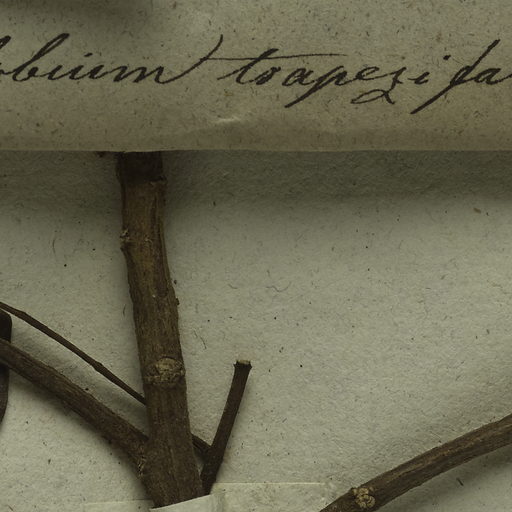 obium trapezifo